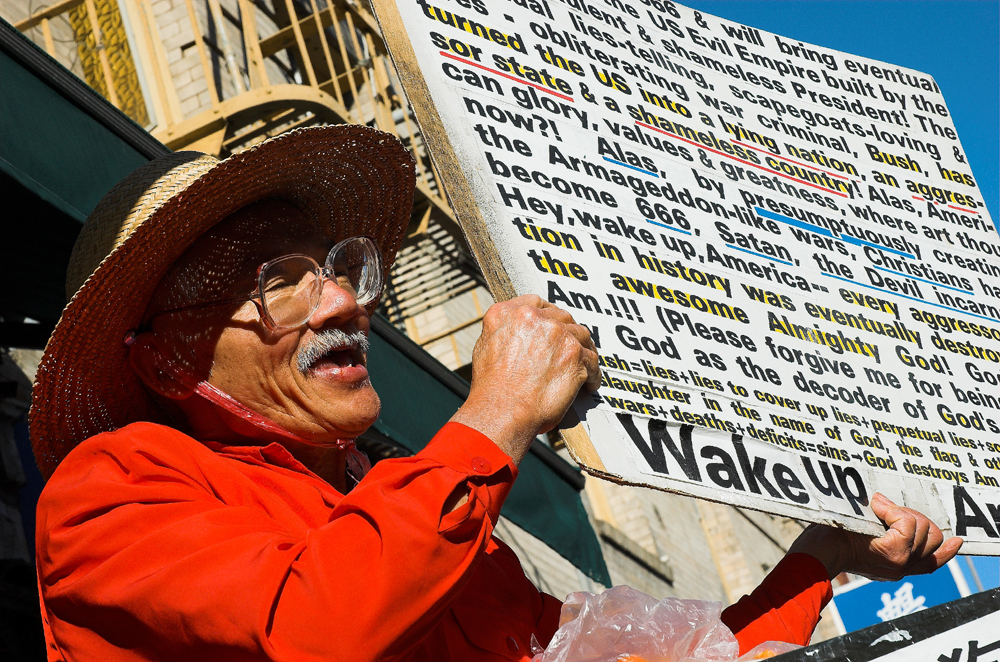 & will bring eventual
the US Evil Empire built by the
& shameless President! The
lies-telling, scapegoats-loving &
- obliterating war criminal, Bush has
turned the US into a lying nation, an aggres-
sor state & a shameless country! Alas, Ameri
can glory, values & greatness, where art thou
now?! Alas, by presumptuously creating
the Armageddon-like wars, Christians ha
become 666, Satan, the Devil incarn
Hey, wake up, America-- every aggressor
tion in history was eventually destro
the awesome Almighty God! God
Am.!!! (Please forgive me for being
God as the decoder of God's
ush=lies+lies to cover up lies+perpetual lies+
slaughter in the name of God, the flag & ot
wars+deaths+deficits=sins→God destroys Am
Wake up A